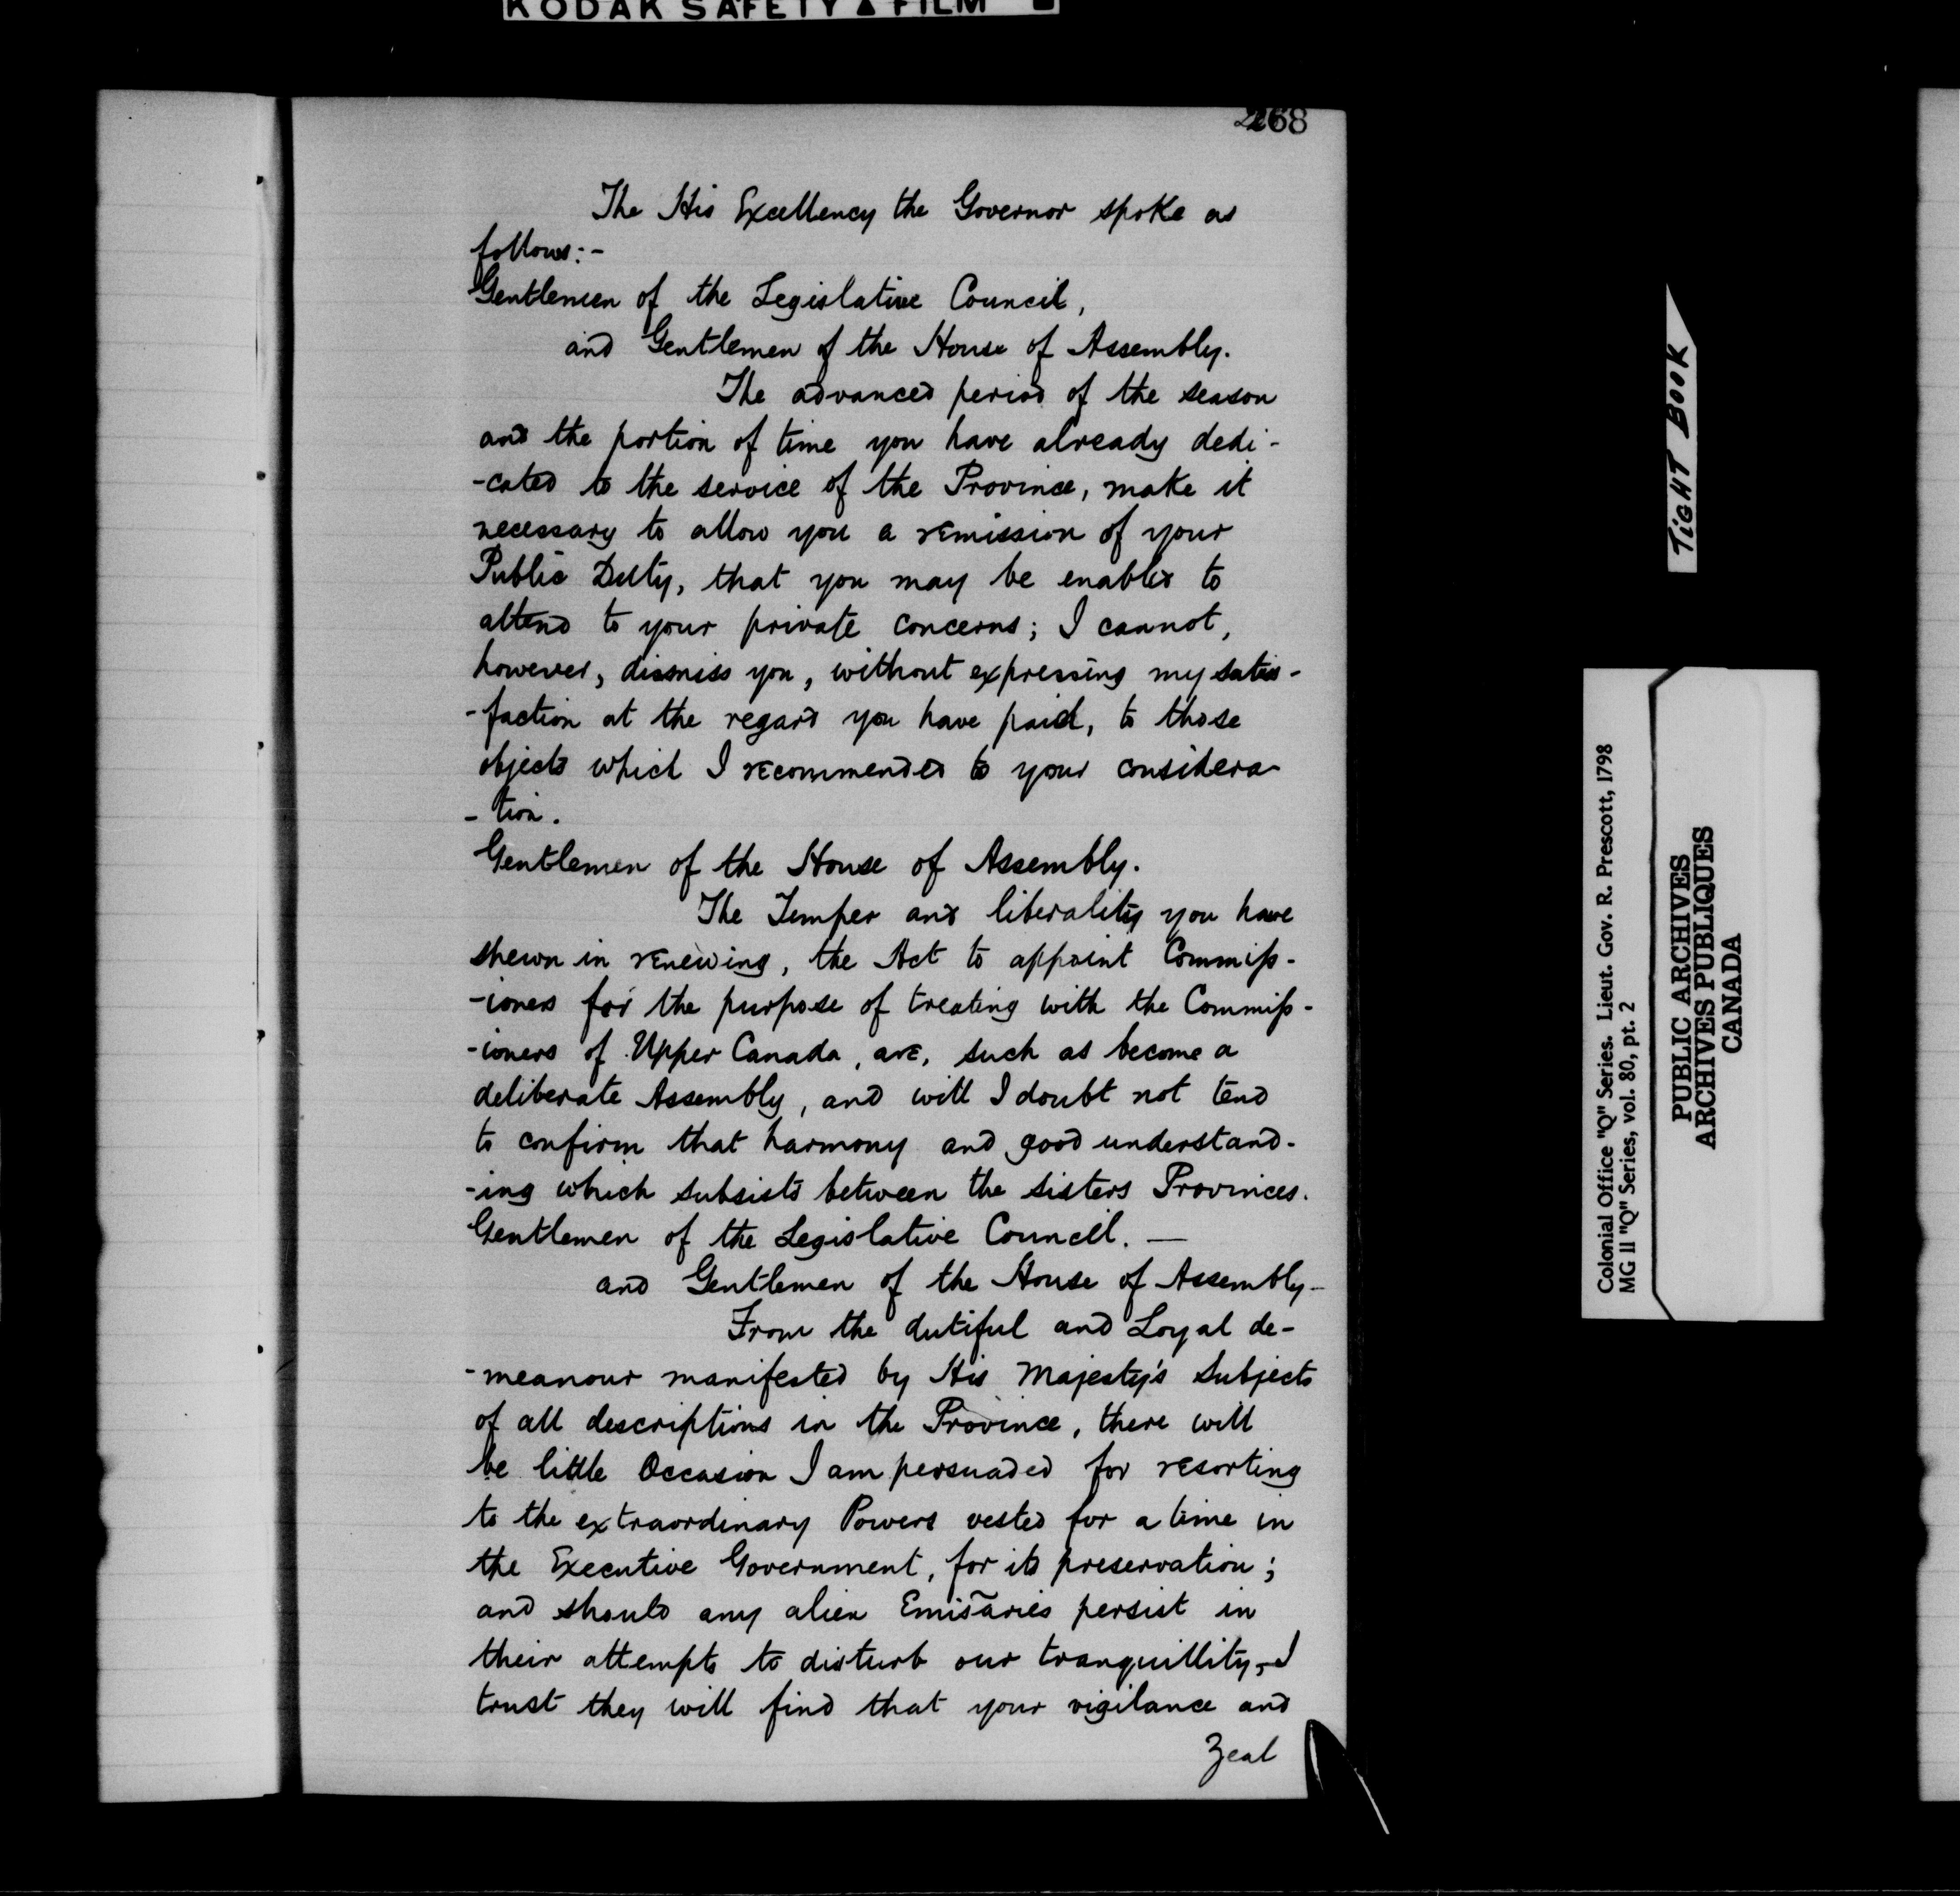 KODAK SAFETY ▲ FILM
268
The His Excellency the Governor spoke as
follows:-
Gentlemen of the Legislative Council,
and Gentlemen of the House of Assembly.
The advanced period of the season
and the portion of time you have already dedi-
-cated to the service of the Province, make it
necessary to allow you a remission of your
Public Duty, that you may be enabled to
attend to your private concerns; I cannot,
however, dismiss you, without expressing my satis-
-faction at the regard you have paid, to those
objects which I recommended to your considera-
-tion.
Gentlemen of the House of Assembly.
The Temper and liberality you have
shewn in renewing, the Act to appoint Commiss-
-ioners for the purpose of treating with the Commiss-
-ioners of Upper Canada, are, such as become a
deliberate Assembly, and will I doubt not tend
to confirm that harmony and good understand-
-ing which subsists between the sisters Provinces.
Gentlemen of the Legislative Council. —
and Gentlemen of the House of Assembly-
From the dutiful and Loyal de-
-meanour manifested by His Majesty's Subjects
of all descriptions in the Province, there will
be little Occasion I am persuaded for resorting
to the extraordinary Powers vested for a time in
the Executive Government, for its preservation;
and should any alien Emisaries persist in
their attempts to disturb our tranquillity, I
trust they will find that your vigilance and
Zeal
TIGHT BOOK
Colonial Office "Q" Series. Lieut. Gov. R. Prescott, 1798
MG 11 "Q" Series, vol. 80, pt. 2
PUBLIC ARCHIVES
ARCHIVES PUBLIQUES
CANADA